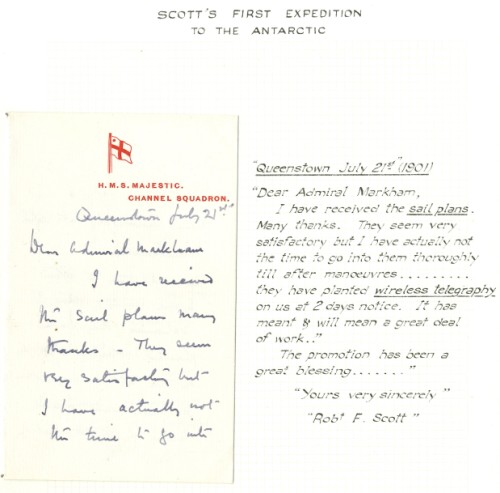 SCOTT'S FIRST EXPEDITION
TO THE ANTARCTIC
H.M.S. MAJESTIC.
CHANNEL SQUADRON.
Queenstown July 21st
Dear Admiral Markham
I have received
the sail plans many
thanks - They seem
very satisfactory but
I have actually not
the time to go into
"Queenstown July 21st" (1901)
"Dear Admiral Markham,
I have received the sail plans.
Many thanks. They seem very
satisfactory but I have actually not
the time to go into them thoroughly
till after manoeuvres.........
they have planted wireless telegraphy
on us at 2 days notice. It has
meant & will mean a great deal
of work.."
The promotion has been a
great blessing......."
"Yours very sincerely"
"Robt F. Scott"